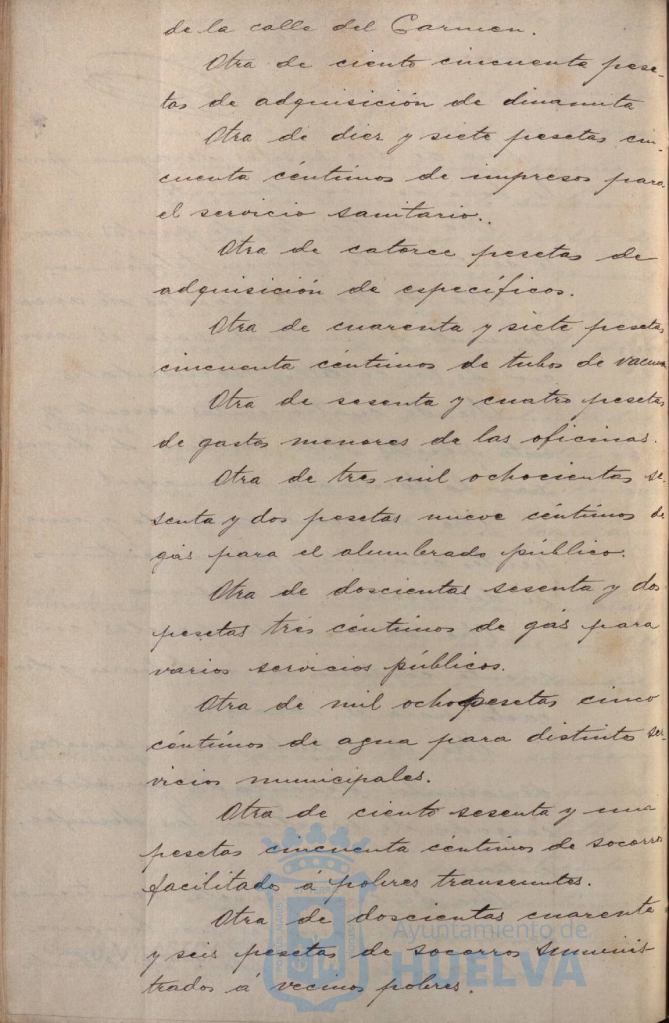 de la calle del Carmen.
Otra de ciento cincuenta pese-
tas de adquisición de dinamita
Otra de diez y siete pesetas cin-
cuenta céntimos de impresos para
el servicio sanitario.
Otra de catorce pesetas de
adquisición de específicos.
Otra de cuarenta y siete pesetas
cincuenta céntimos de tubos de vacuna
Otra de sesenta y cuatro pesetas
de gastos menores de las oficinas.
Otra de tres mil ochocientas se-
senta y dos pesetas nueve céntimos de
gás para el alumbrado público.
Otra de doscientas sesenta y dos
pesetas tres céntimos de gás para
varios servicios públicos.
Otra de mil ocho pesetas cinco
céntimos de agua para distintos ser-
vicios municipales.
Otra de ciento sesenta y una
pesetas cincuenta céntimos de socorros
facilitados á pobres transeuntes.
Otra de doscientas cuarenta
y seis pesetas de socorros suminis-
trados á vecinos pobres.
Ayuntamiento de
HUELVA